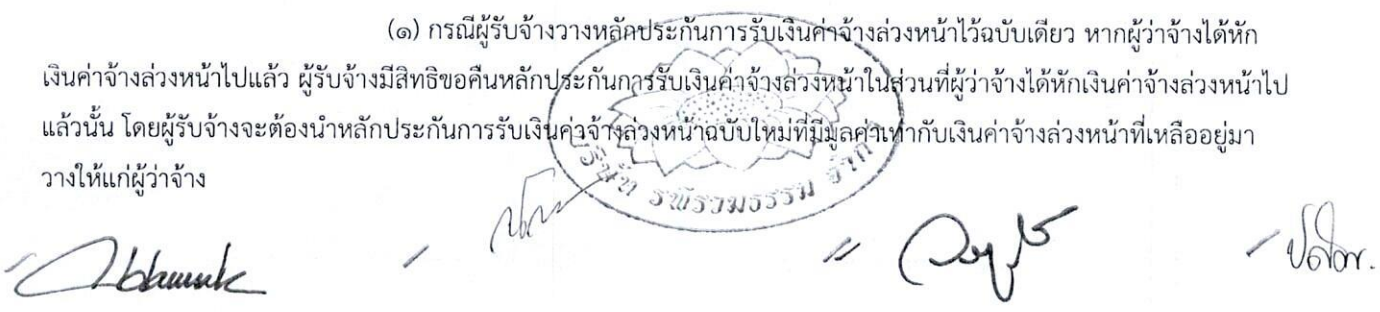 (๑) กรณีผู้รับจ้างวางหลักประกันการรับเงินค่าจ้างล่วงหน้าไว้ฉบับเดียว หากผู้ว่าจ้างได้หัก
เงินค่าจ้างล่วงหน้าไปแล้ว ผู้รับจ้างมีสิทธิขอคืนหลักประกันการรับเงินค่าจ้างล่วงหน้าในส่วนที่ผู้ว่าจ้างได้หักเงินค่าจ้างล่วงหน้าไป
แล้วนั้น โดยผู้รับจ้างจะต้องนำหลักประกันการรับเงินค่าจ้างล่วงหน้าฉบับใหม่ที่มีมูลค่าเท่ากับเงินค่าจ้างล่วงหน้าที่เหลืออยู่มา
วางให้แก่ผู้ว่าจ้าง
บริษัท รพีรวมธรรม จำกัด